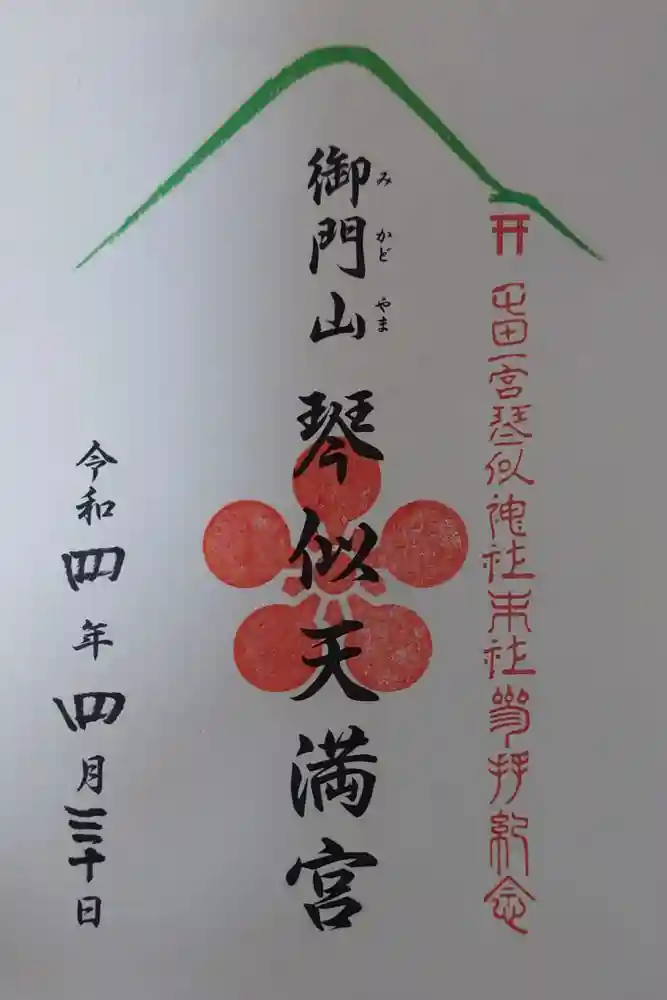 屯田一宮琴似神社末社参拝紀念
みかどやま
御門山 琴似天満宮
令和四年四月三十日